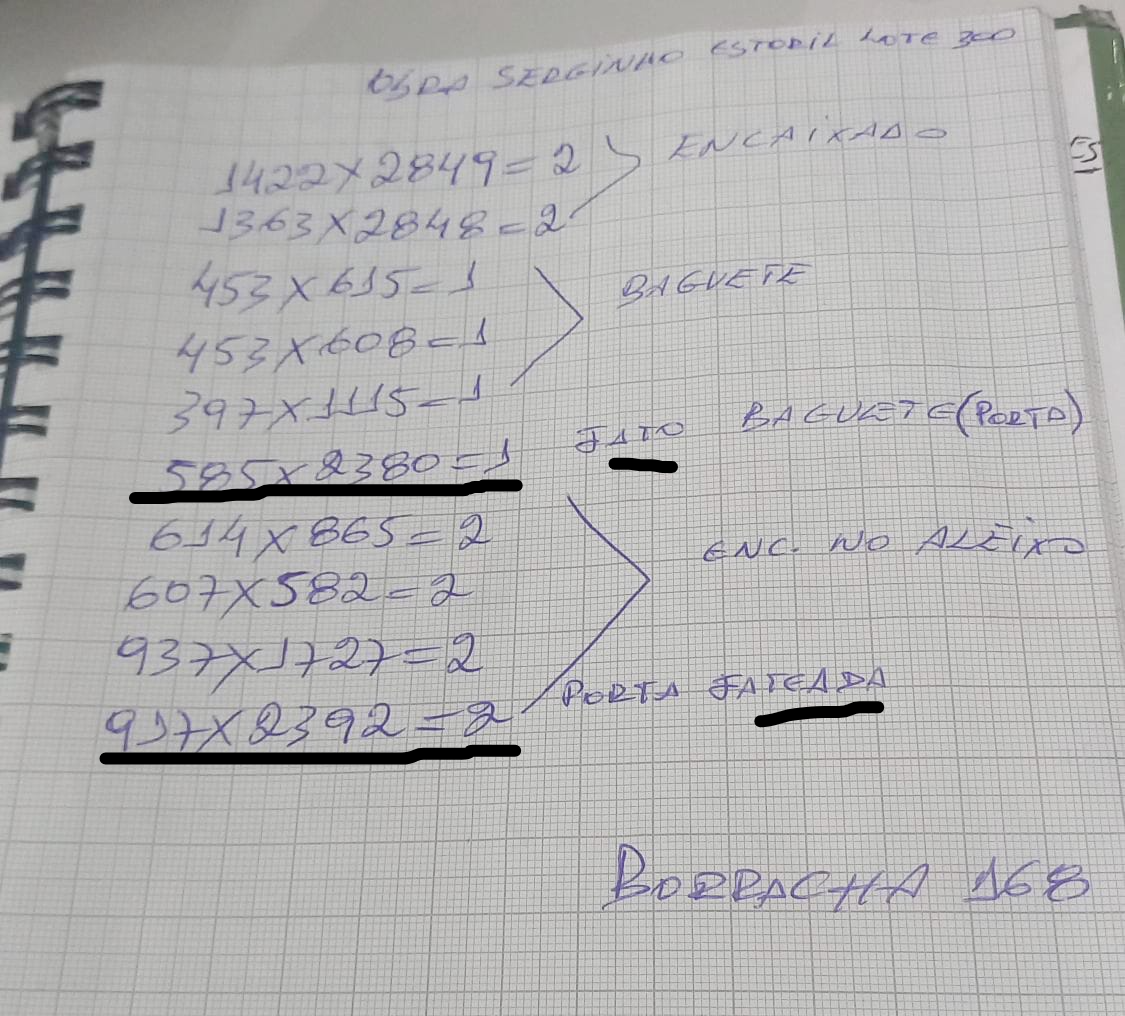 OBRA SERGINHO ESTORIL LOTE 300
1422X2849=2 ENCAIXADO
1363X2848=2
453X615=1 BAGUETE
453X608=1
397X1115=1
585X2380=1 JATO BAGUETE(PORTA)
614X865=2
607X582=2 ENC. NO ALEIXO
937X1727=2
937X2392=2 PORTA JATEADA
BORRACHA 168
ES